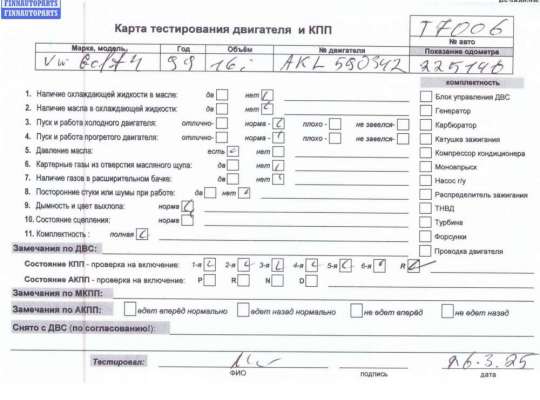 FINNAUTOPARTS
FINNAUTOPARTS
Карта тестирования двигателя и КПП
T7006
№ авто
Марка, модель, Год Объём № двигателя Показание одометра
VW Golf 4 99 16i AKL 550342 225140
комплектность
1. Наличие охлаждающей жидкости в масле: да нет
2. Наличие масла в охлаждающей жидкости: да нет
3. Пуск и работа холодного двигателя: отлично- норма - плохо - не завелся-
4. Пуск и работа прогретого двигателя: отлично- норма - плохо - не завелся-
5. Давление масла: есть нет
6. Картерные газы из отверстия масляного щупа: да нет
7. Наличие газов в расширительном бачке: да нет
8. Посторонние стуки или шумы при работе: да нет
9. Дымность и цвет выхлопа: норма
10. Состояние сцепления: норма
11. Комплектность : полная
Блок управления ДВС
Генератор
Карбюратор
Катушке зажигания
Компрессор кондиционера
Моновпрыск
Насос г/у
Распределитель зажигания
ТНВД
Турбина
Форсунки
Проводка двигателя
Замечания по ДВС:
Состояние КПП - проверка на включение: 1-я 2-я 3-я 4-я 5-я 6-я R
Состояние АКПП - проверка на включение: P R N D
Замечания по МКПП:
Замечания по АКПП: едет вперёд нормально едет назад нормально не едет вперёд не едет назад
Снято с ДВС (по согласованию!):
Тестировал: 26.3.25
ФИО подпись дата